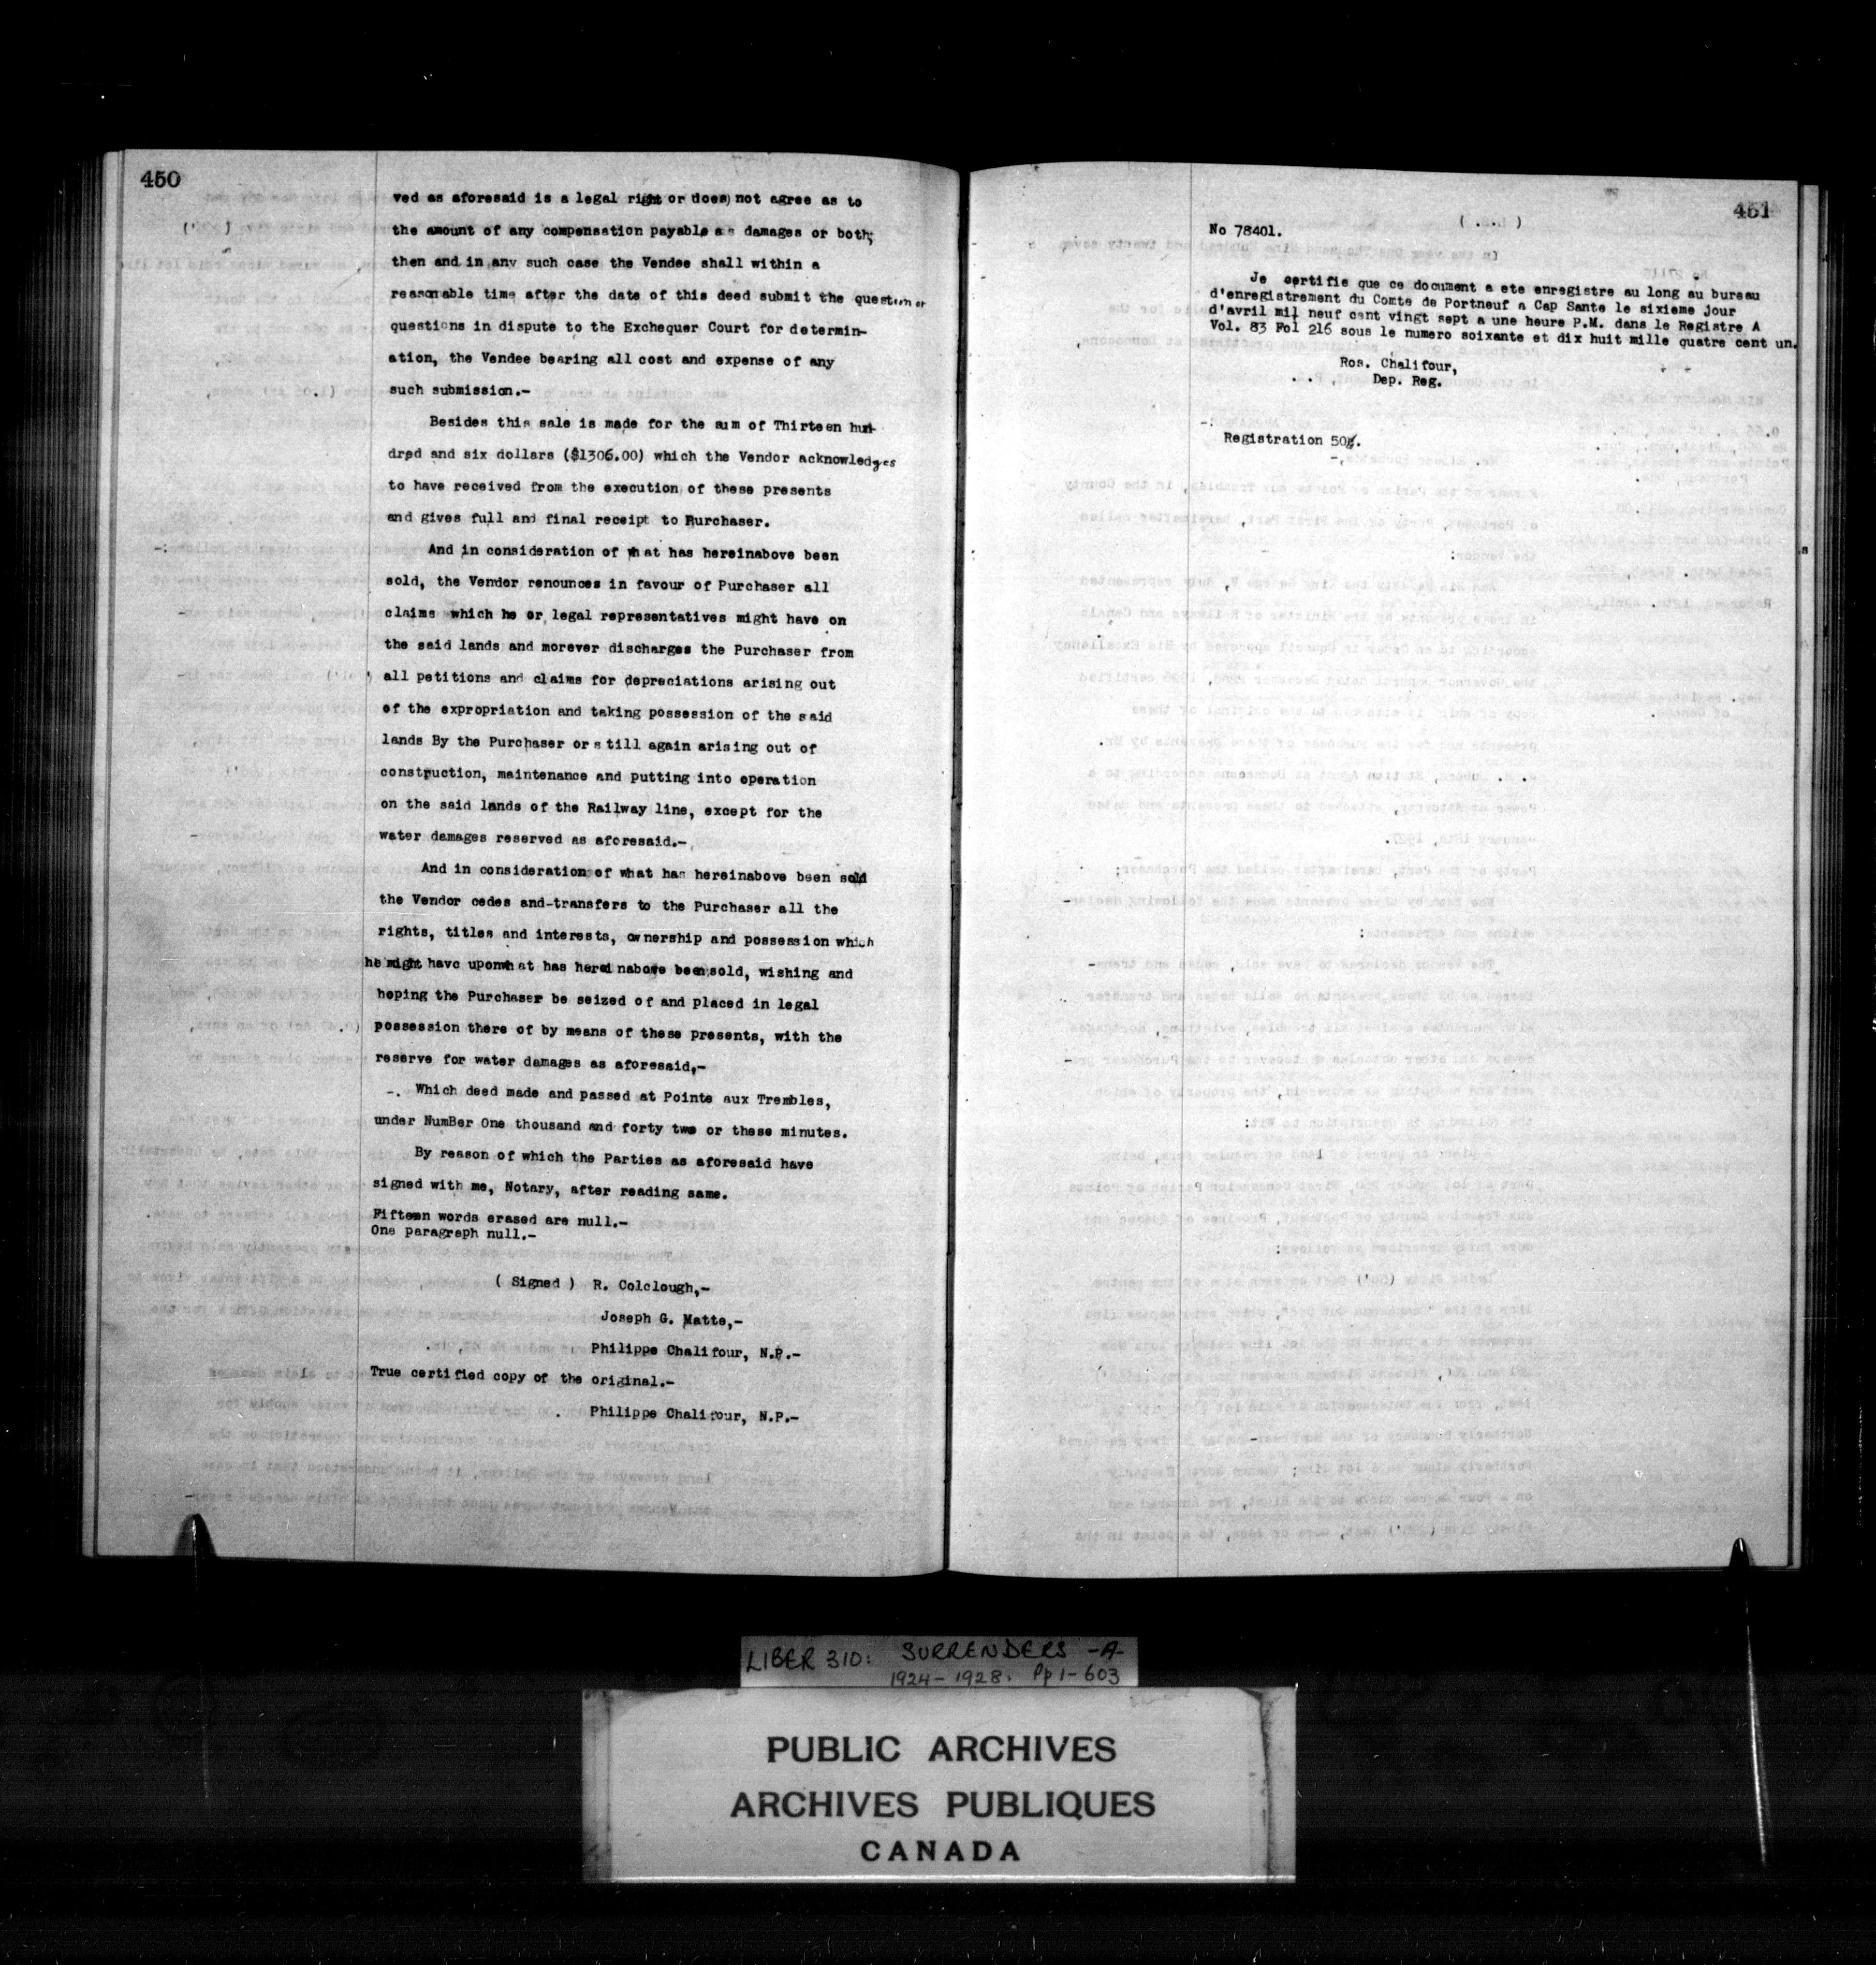 450
ved as aforesaid is a legal right or does not agree as to
the amount of any compensation payable as damages or both;
then and in any such case the Vendee shall within a
reasonable time after the date of this deed submit the question or
questions in dispute to the Exchequer Court for determin-
ation, the Vendee bearing all cost and expense of any
such submission.-
Besides this sale is made for the sum of Thirteen hun-
dred and six dollars ($1306.00) which the Vendor acknowledges
to have received from the execution of these presents
and gives full and final receipt to Purchaser.
And in consideration of what has hereinabove been
sold, the Vendor renounces in favour of Purchaser all
claims which he or legal representatives might have on
the said lands and morever discharges the Purchaser from
all petitions and claims for depreciations arising out
of the expropriation and taking possession of the said
lands By the Purchaser or still again arising out of
construction, maintenance and putting into operation
on the said lands of the Railway line, except for the
water damages reserved as aforesaid.-
And in consideration of what has hereinabove been sold
the Vendor cedes and-transfers to the Purchaser all the
rights, titles and interests, ownership and possession which
he might have upon what has hereinabove been sold, wishing and
hoping the Purchaser be seized of and placed in legal
possession there of by means of these presents, with the
reserve for water damages as aforesaid,-
-. Which deed made and passed at Pointe aux Trembles,
under NumBer One thousand and forty two or these minutes.
By reason of which the Parties as aforesaid have
signed with me, Notary, after reading same.
Fifteen words erased are null.-
One paragraph null.-
( Signed ) R. Colclough,-
Joseph G. Matte,-
Philippe Chalifour, N.P.-
True certified copy of the original.-
Philippe Chalifour, N.P.-
451
No 78401.
Je certifie que ce document a ete enregistre au long au bureau
d'enregistrement du Comte de Portneuf a Cap Sante le sixieme jour
d'avril mil neuf cent vingt sept a une heure P.M. dans le Registre A
Vol. 83 Fol 216 sous le numero soixante et dix huit mille quatre cent un.
Ros. Chalifour,
Dep. Reg.
Registration 50¢.
LIBER 310: SURRENDERS -A-
1924-1928. Pp 1-603
PUBLIC ARCHIVES
ARCHIVES PUBLIQUES
CANADA